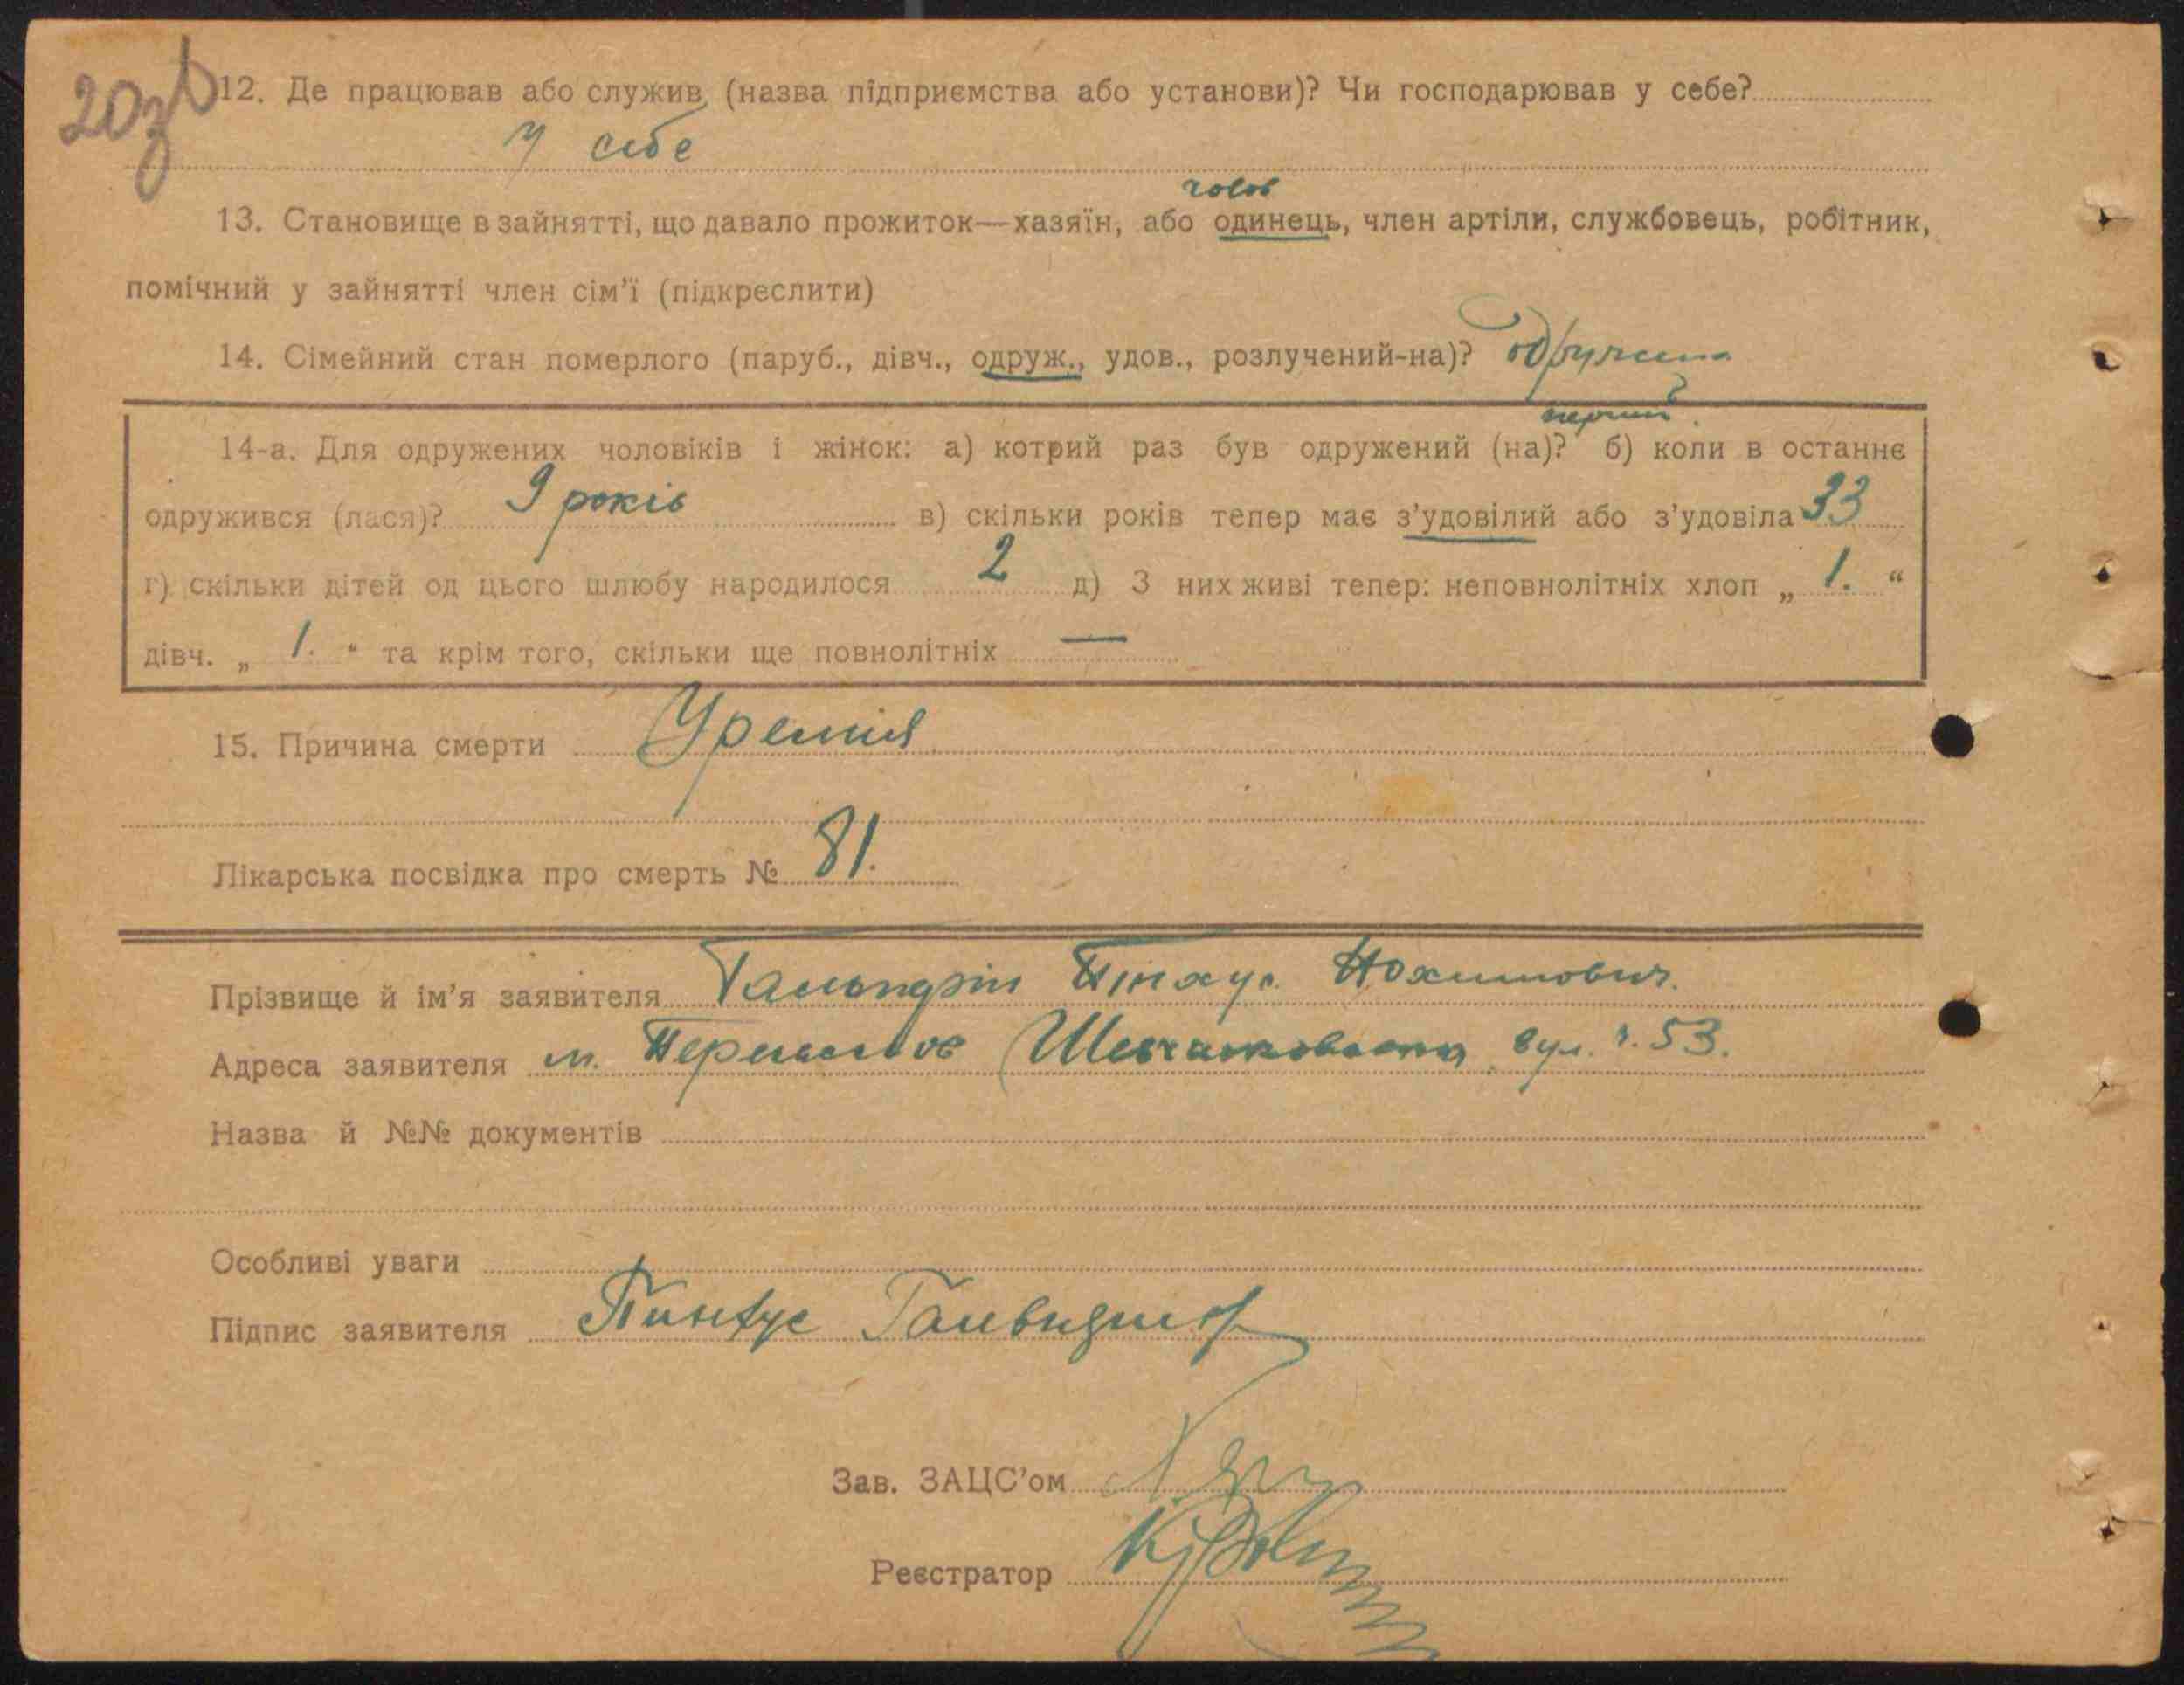 20зв
12. Де працював або служив, (назва підприємства або установи)? Чи господарював у себе?
у себе
чолов
13. Становище в зайнятті, що давало прожиток—хазяїн, або одинець, член артіли, службовець, робітник,
помічний у зайнятті член сім'ї (підкреслити)
14. Сімейний стан померлого (паруб., дівч., одруж., удов., розлучений-на)?
14-а. Для одружених чоловіків і жінок: а) котрий раз був одружений (на)? б) коли в останнє
одружився (лася)? 9 років в) скільки років тепер має з'удовілий або з'удовіла 33
г) скільки дітей од цього шлюбу народилося 2 д) З них живі тепер: неповнолітніх хлоп „ 1. “
дівч. „ 1. “ та крім того, скільки ще повнолітніх —
15. Причина смерти Уремия
Лікарська посвідка про смерть № 81.
Прізвище й ім'я заявителя
Адреса заявителя м. вул. ч. 53.
Назва й №№ документів
Особливі уваги
Підпис заявителя Пинхус
Зав. ЗАЦС'ом
Реєстратор